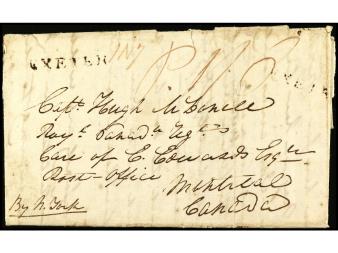 EXETER
EXETER
Capt. Hugh McDonell
Roy.l Canad.n Reg.t
Care of E. Edwards Esqre
Post-Office
Montreal
Canada
By N. York